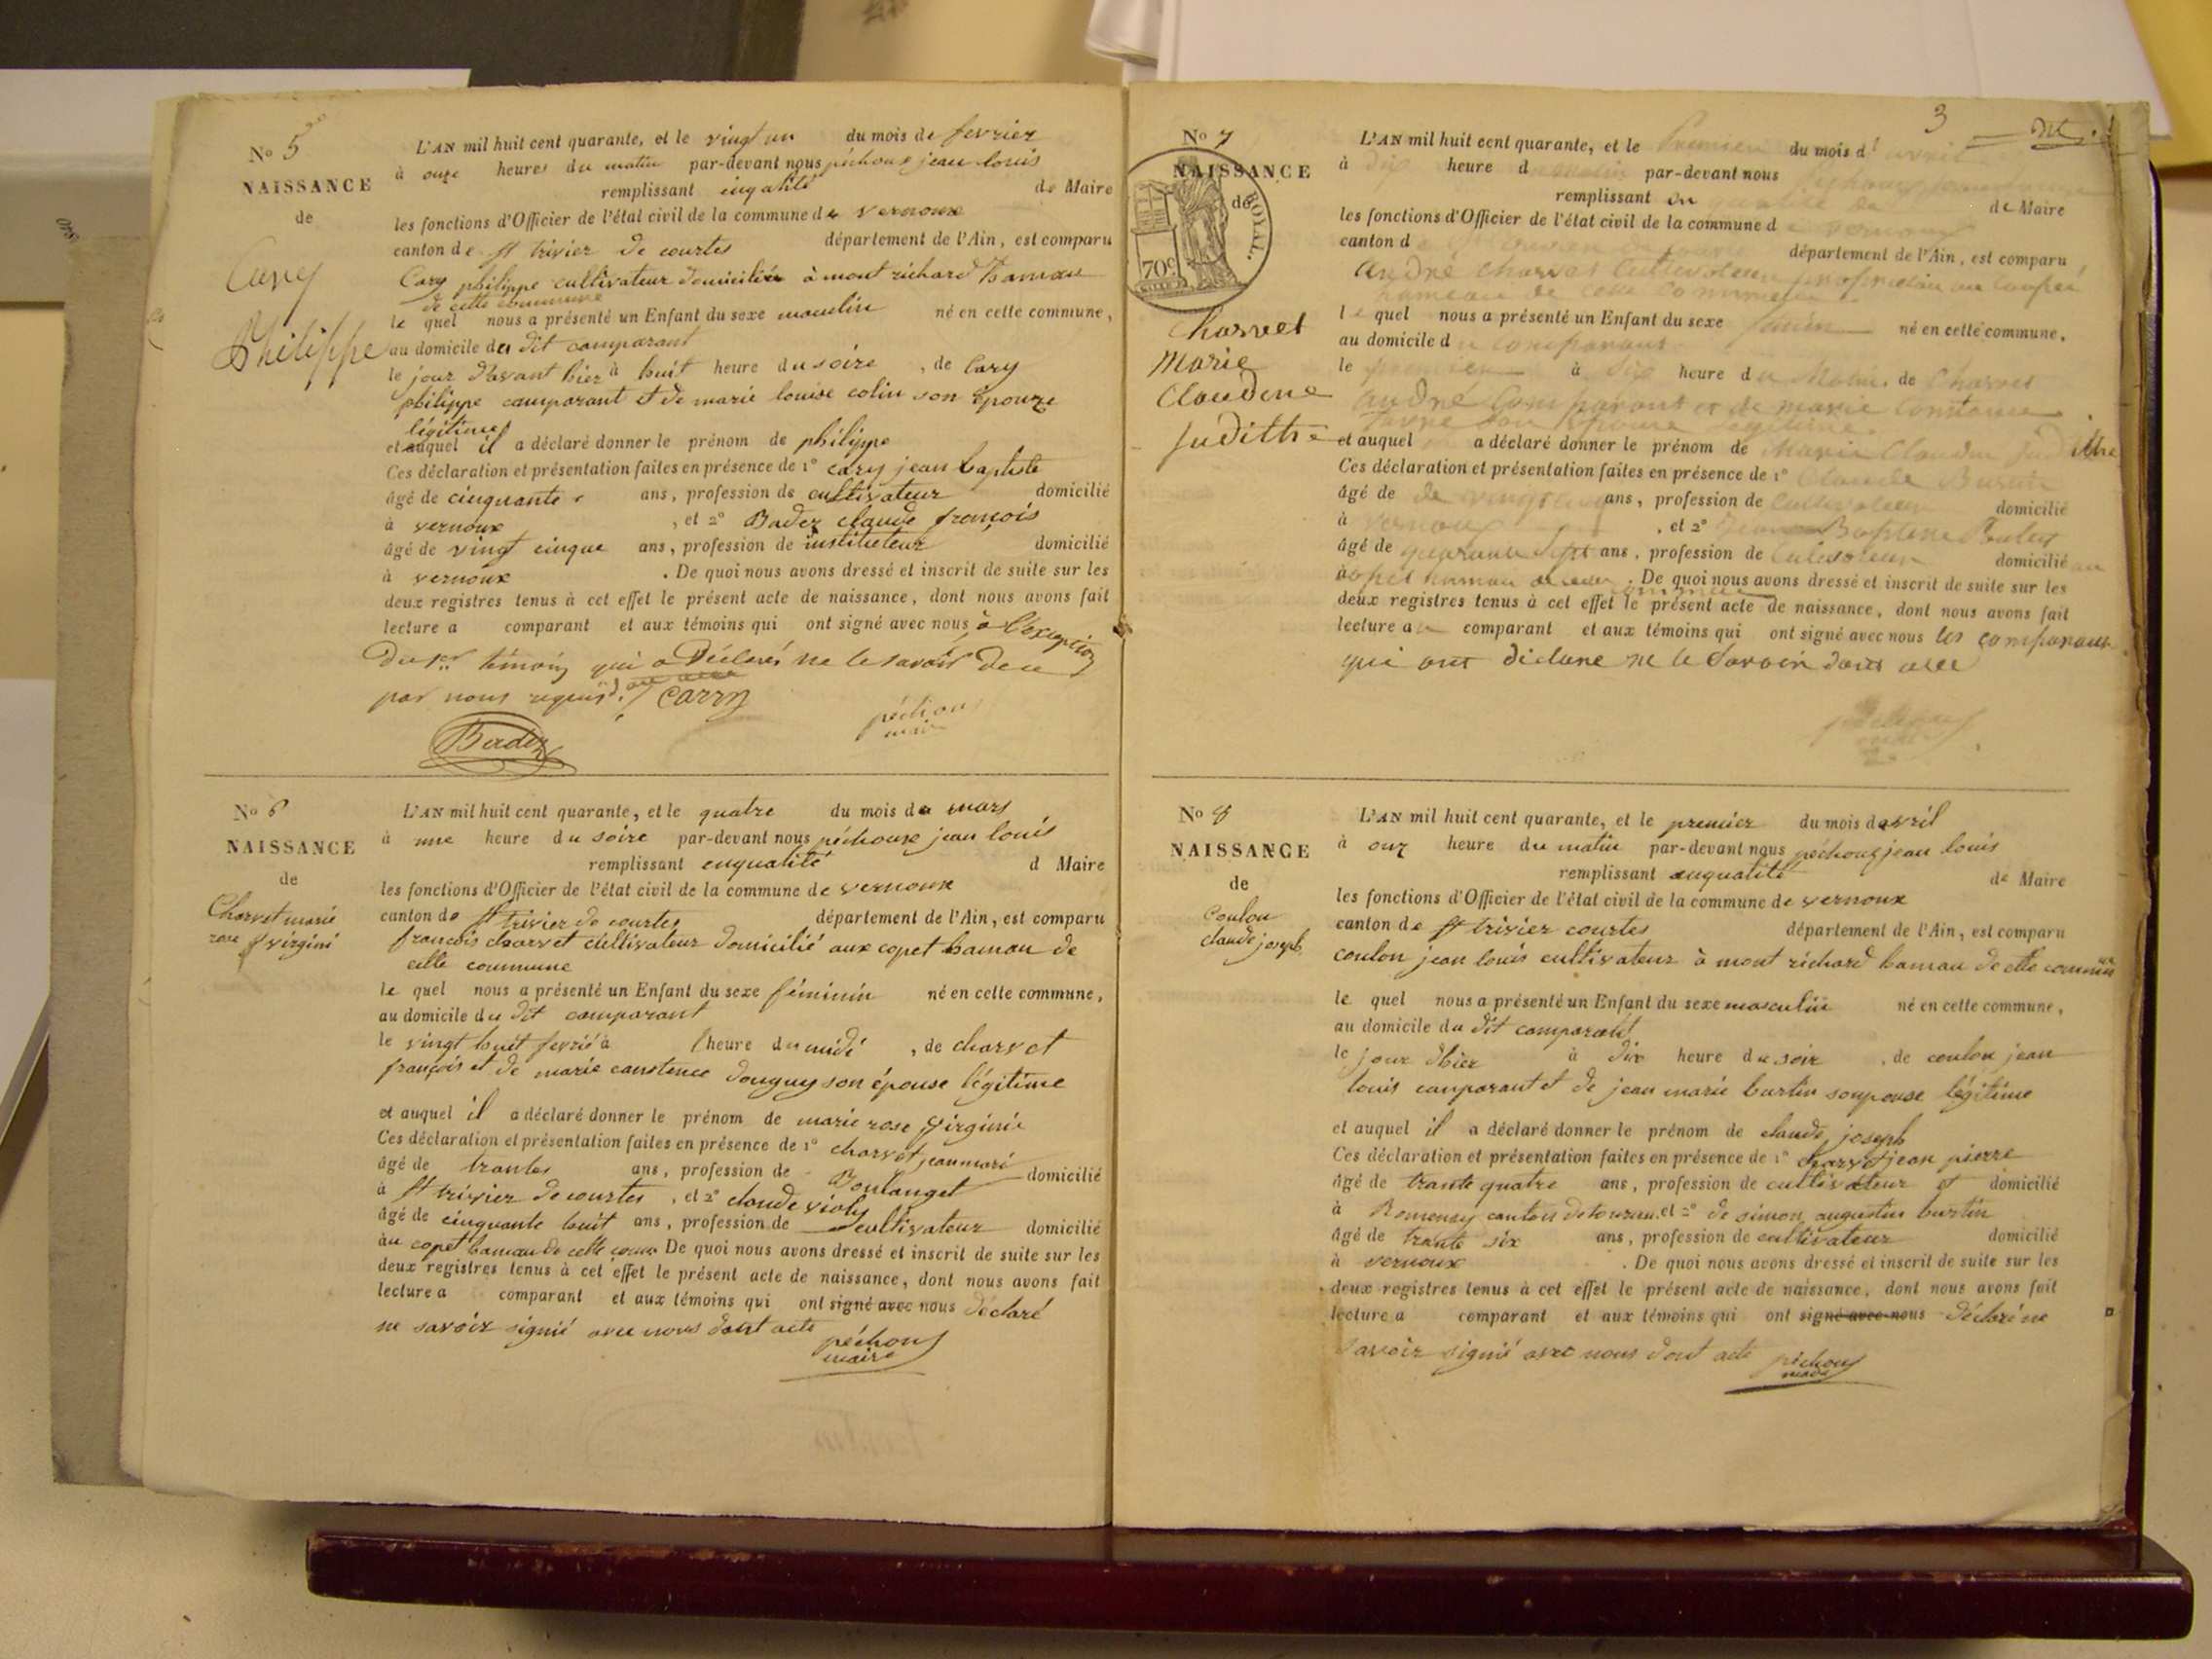 No 5
NAISSANCE
de
Cary
Philippe
L'AN mil huit cent quarante, et le vingt un du mois de fevrier
à onze heures du matin par-devant nous péchoux jean louis
remplissant enqalité de Maire
les fonctions d'Officier de l'état civil de la commune de vernoux
canton de st trivier de courtes département de l'Ain, est comparu
Cary philippe cultivateur domiciliér à mont richard hamau
de cette commune
le quel nous a présenté un Enfant du sexe masculin né en cette commune,
au domicile du dit comparant
le jour d'avant hier à huit heure du soire , de Cary
philippe comparant et de marie louise colin son épouze
légitime
et auquel il a déclaré donner le prénom de philippe
Ces déclaration et présentation faites en présence de 1° cary jean baptiste
âgé de cinquante ans, profession de cultivateur domicilié
à vernoux , et 2° Bader claude françois
âgé de vingt cinque ans, profession de instituteur domicilié
à vernoux . De quoi nous avons dressé et inscrit de suite sur les
deux registres tenus à cet effet le présent acte de naissance, dont nous avons fait
lecture a comparant et aux témoins qui ont signé avec nous à l'exception
du 1er témoin qui a déclaré ne le savoir de ce
par nous requis. Carry
Bader
péchoux
maire
No 6
NAISSANCE
de
Charvet marie
rose virgini
L'AN mil huit cent quarante, et le quatre du mois de mars
à une heure du soire par-devant nous péchoux jean louis
remplissant enqualité d Maire
les fonctions d'Officier de l'état civil de la commune de vernoux
canton de st trivier de courtes département de l'Ain, est comparu
françois charvet cultivateur domicilié aux copet hamau de
cette commune
le quel nous a présenté un Enfant du sexe féminin né en cette commune,
au domicile du dit comparant
le vingt huit fevrié à heure du midi , de charvet
françois et de marie constence douguy son épouse légitime
et auquel il a déclaré donner le prénom de marie rose virginie
Ces déclaration et présentation faites en présence de 1° charvet jeanmarie
âgé de trantes ans, profession de Boulanget domicilié
à st trivier de courtes , et 2° claude violy
âgé de cinquante huit ans, profession de cultivateur domicilié
au copet hamau de cette com De quoi nous avons dressé et inscrit de suite sur les
deux registres tenus à cet effet le présent acte de naissance, dont nous avons fait
lecture a comparant et aux témoins qui ont signé avec nous déclaré
ne savoir signié avec nous dont acte
péchoux
maire
3
No 7
NAISSANCE
de
ROYAL.
70c
Charvet
Marie
Claudine
Judithe
L'AN mil huit cent quarante, et le Premier du mois d' avril
à dix heure d matin par-devant nous
remplissant en qualité de de Maire
les fonctions d'Officier de l'état civil de la commune de vernoux
canton d département de l'Ain, est comparu
André Charvet Cultivateur
hameau de cette Commune
le quel nous a présenté un Enfant du sexe né en cette commune.
au domicile du comparant
le premier à six heure du Matin, de Charvet
André Comparant et de marie constance
son épouse légitime
et auquel a déclaré donner le prénom de Marie Claudine Judithe
Ces déclaration et présentation faites en présence de 1° Claude
âgé de ans, profession de Cultivateur domicilié
à vernoux , et 2° Baptiste
âgé de quarante sept ans, profession de Cultivateur domicilié au
copet hamau . De quoi nous avons dressé et inscrit de suite sur les
commune
deux registres tenus à cet effet le présent acte de naissance, dont nous avons fait
lecture au comparant et aux témoins qui ont signé avec nous les comparants
qui ont diclaré ne le savoir dont acte
No 8
NAISSANCE
de
Coulon
claude joseph
L'AN mil huit cent quarante, et le premier du mois d avril
à onz heure du matin par-devant nous péchoux jean louis
remplissant enqualité de Maire
les fonctions d'Officier de l'état civil de la commune de vernoux
canton de st trivier courtes département de l'Ain, est comparu
coulon jean louis cultivateur à mont richard hamau de cette commune
le quel nous a présenté un Enfant du sexe masculin né en cette commune,
au domicile du dit comparant
le jour d'hier à dix heure du soir , de coulon jean
louis comparant et de jean marie burtin sonpouse légitime
et auquel il a déclaré donner le prénom de claude joseph
Ces déclaration et présentation faites en présence de 1° charvet jean pierre
âgé de trante quatre ans, profession de cultivateur et domicilié
à Romenay canton de tournu, et 2° de simon augustin burtin
âgé de trante six ans, profession de cultivateur domicilié
à vernoux . De quoi nous avons dressé et inscrit de suite sur les
deux registres tenus à cet effet le présent acte de naissance, dont nous avons fait
lecture a comparant et aux témoins qui ont signé avec nous déclaré ne
savoir signié avec nous dont acte
péchoux
maire